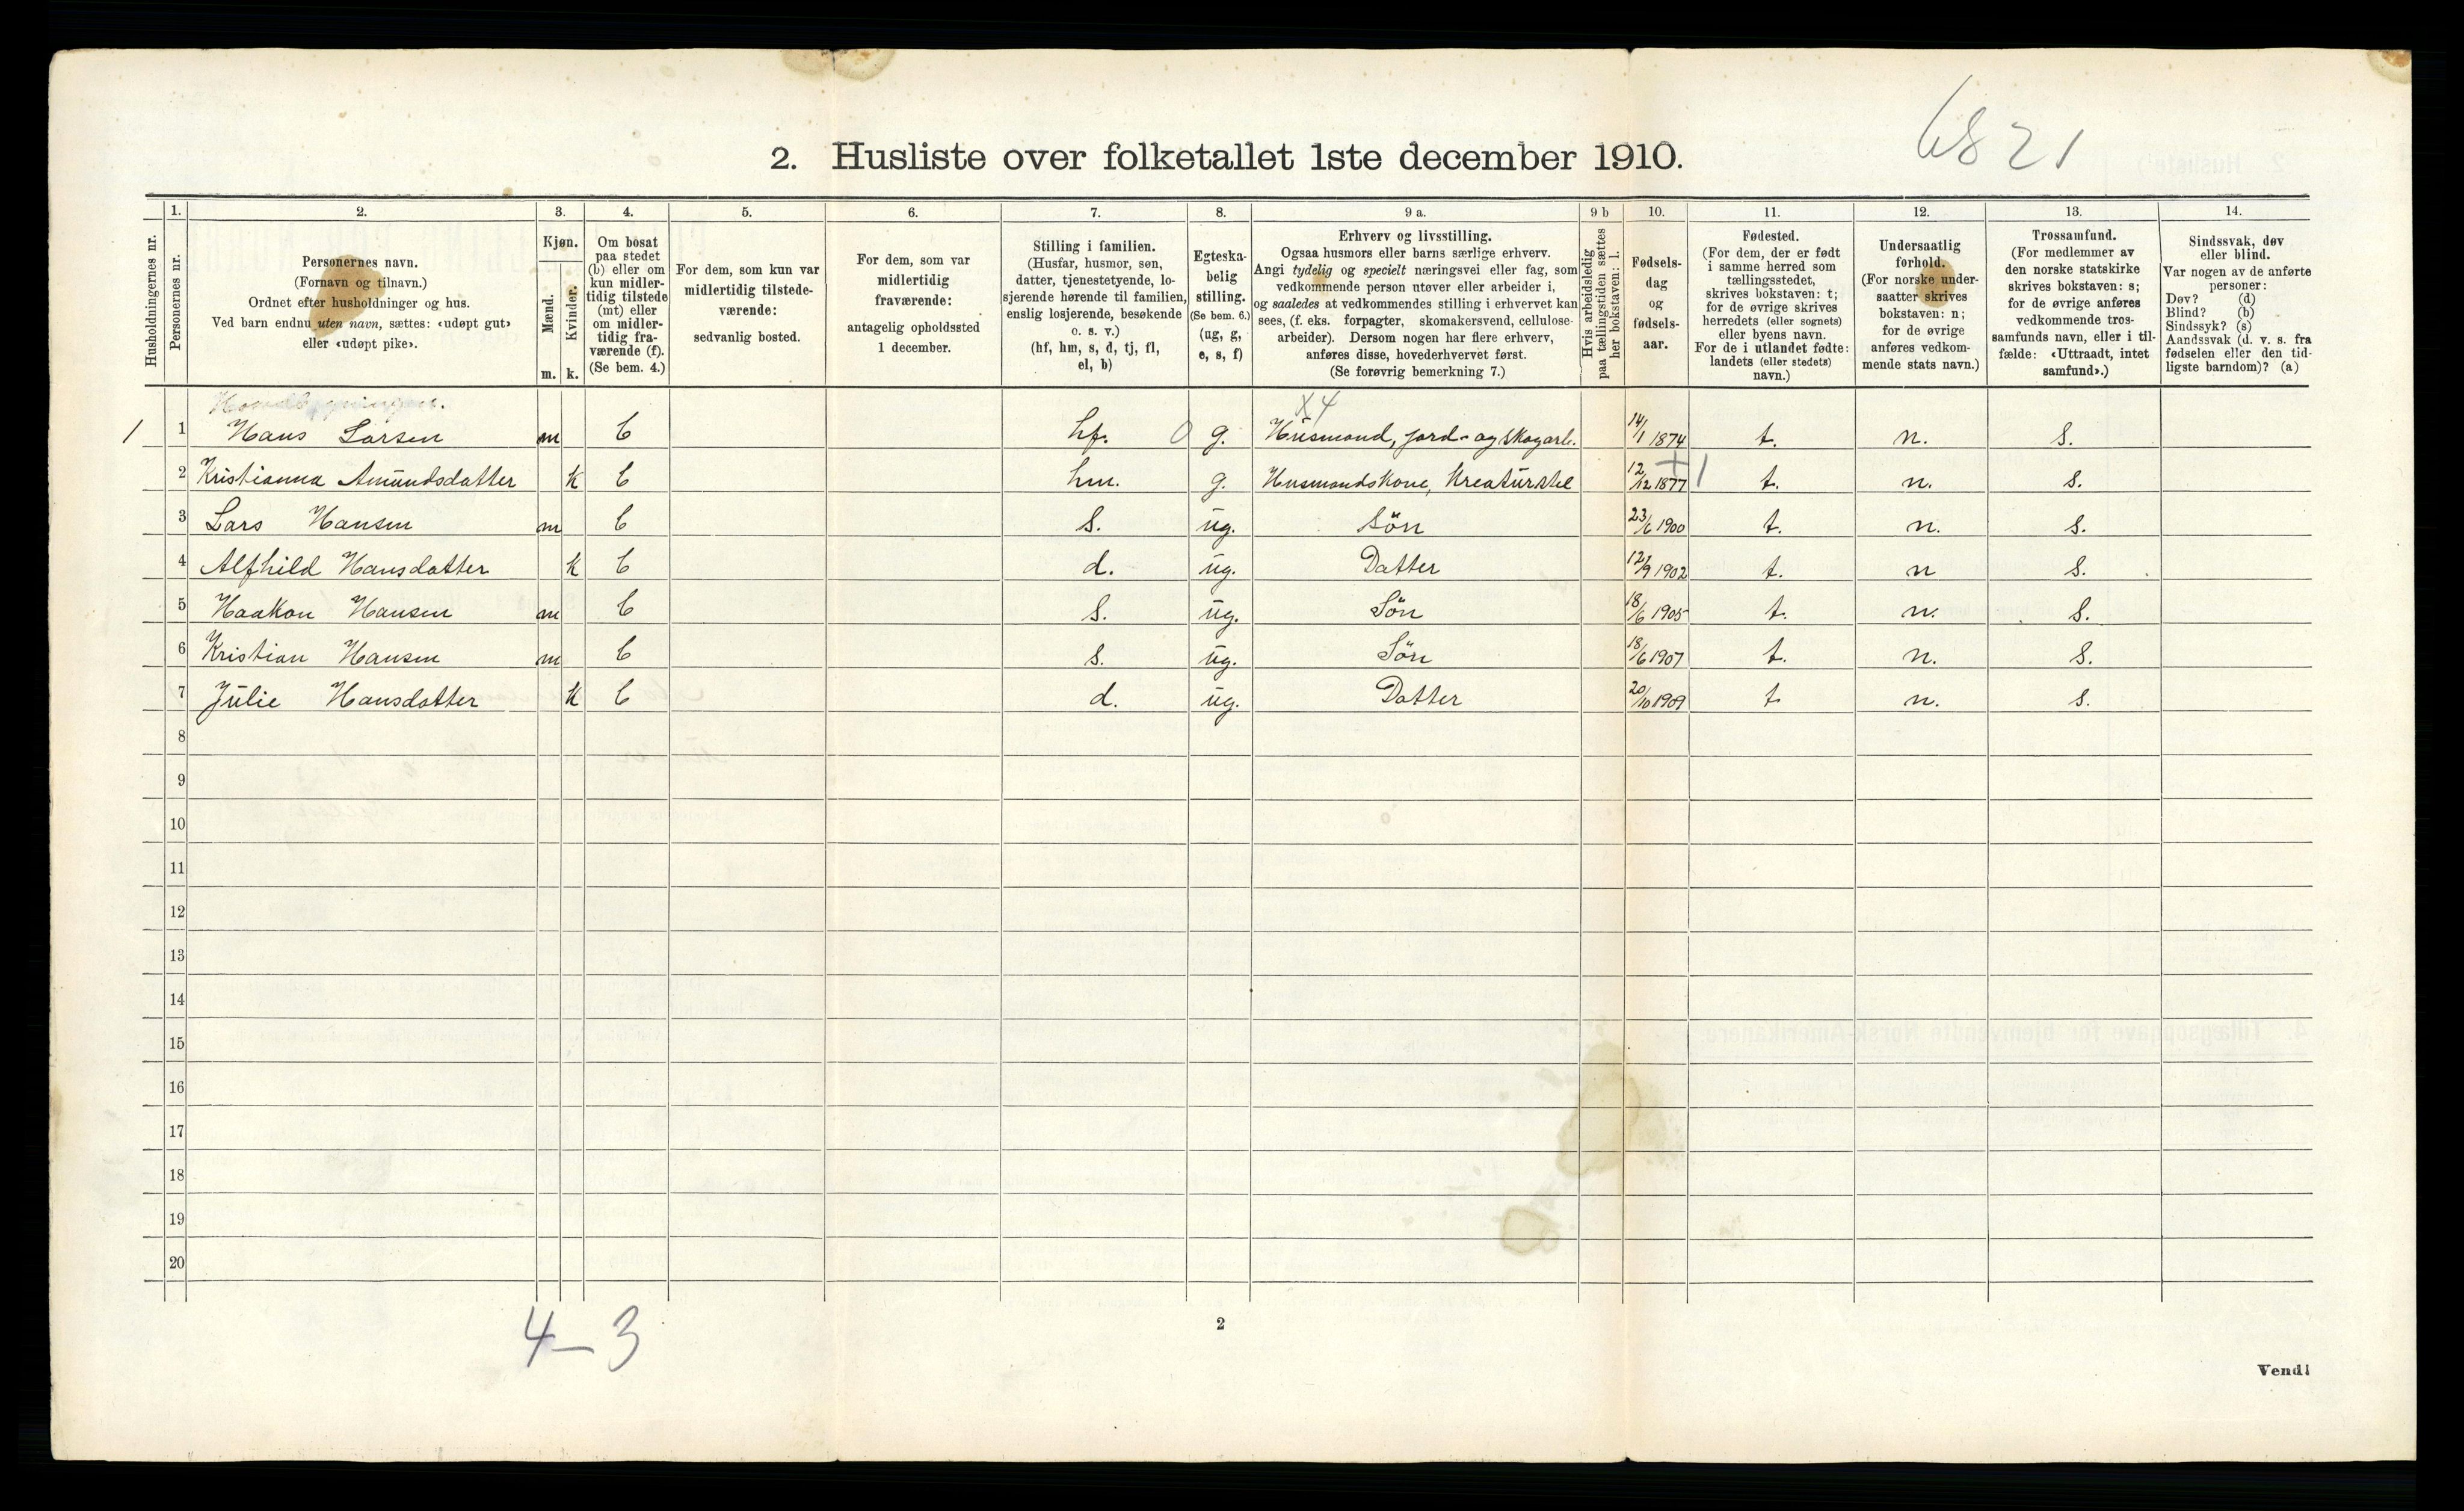 6821
2. Husliste over folketallet 1ste december 1910.
Husholdningernes nr.
1.
Personernes nr.
2.
Personernes navn.
(Fornavn og tilnavn.)
Ordnet efter husholdninger og hus.
Ved barn endnu uten navn, sættes: «udøpt gut»
eller «udøpt pike».
3.
Kjøn.
Mænd.
Kvinder.
m. k.
4.
Om bosat
paa stedet
(b) eller om
kun midler-
tidig tilstede
(mt) eller
om midler-
tidig fra-
værende (f).
(Se bem. 4.)
5.
For dem, som kun var
midlertidig tilstede-
værende:
sedvanlig bosted.
6.
For dem, som var
midlertidig
fraværende:
antagelig opholdssted
1 december.
7.
Stilling i familien.
(Husfar, husmor, søn,
datter, tjenestetyende, lo-
sjerende hørende til familien,
enslig losjerende, besøkende
o. s. v.)
(hf, hm, s, d, tj, fl,
el, b)
8.
Egteska-
belig
stilling.
(Se bem. 6.)
(ug, g,
e, s, f)
9 a.
Erhverv og livsstilling.
Ogsaa husmors eller barns særlige erhverv.
Angi tydelig og specielt næringsvei eller fag, som
vedkommende person utøver eller arbeider i,
og saaledes at vedkommendes stilling i erhvervet kan
sees, (f. eks. forpagter, skomakersvend, cellulose-
arbeider). Dersom nogen har flere erhverv,
anføres disse, hovederhvervet først.
(Se forøvrig bemerkning 7.)
9 b
Hvis arbeidsledig
paa tællingstiden sættes
her bokstaven: l.
10.
Fødsels-
dag
og
fødsels-
aar.
11.
Fødested.
(For dem, der er født
i samme herred som
tællingsstedet,
skrives bokstaven: t;
for de øvrige skrives
herredets (eller sognets)
eller byens navn.
For de i utlandet fødte:
landets (eller stedets)
navn.)
12.
Undersaatlig
forhold.
(For norske under-
saatter skrives
bokstaven: n;
for de øvrige
anføres vedkom-
mende stats navn.)
13.
Trossamfund.
(For medlemmer av
den norske statskirke
skrives bokstaven: s;
for de øvrige anføres
vedkommende tros-
samfunds navn, eller i til-
fælde: «Uttraadt, intet
samfund».)
14.
Sindssvak, døv
eller blind.
Var nogen av de anførte
personer:
Døv? (d)
Blind? (b)
Sindssyk? (s)
Aandssvak (d. v. s. fra
fødselen eller den tid-
ligste barndom)? (a)
X4
1 1 Hans Larsen m b hf. 0 g. Husmand, jord- og skogarb. 14/1 1874 t. n. s.
2 Kristianna Amundsdatter k b hm. g. Husmandskone, Kreaturstel 12/12 1877 +1 t. n. s.
3 Lars Hansen m b s. ug. Sön 23/6 1900 t. n. s.
4 Alfhild Hansdatter k b d. ug. Datter 12/9 1902 t. n s.
5 Haakon Hansen m b s. ug. Sön 18/6 1905 t. n. s.
6 Kristian Hansen m b s. ug. Sön 18/6 1907 t. n. s.
7 Julie Hansdatter k b d. ug. Datter 20/10 1909 t n. s.
8
9
10
11
12
13
14
15
16
17
18
19
20
4-3
2
Vend!